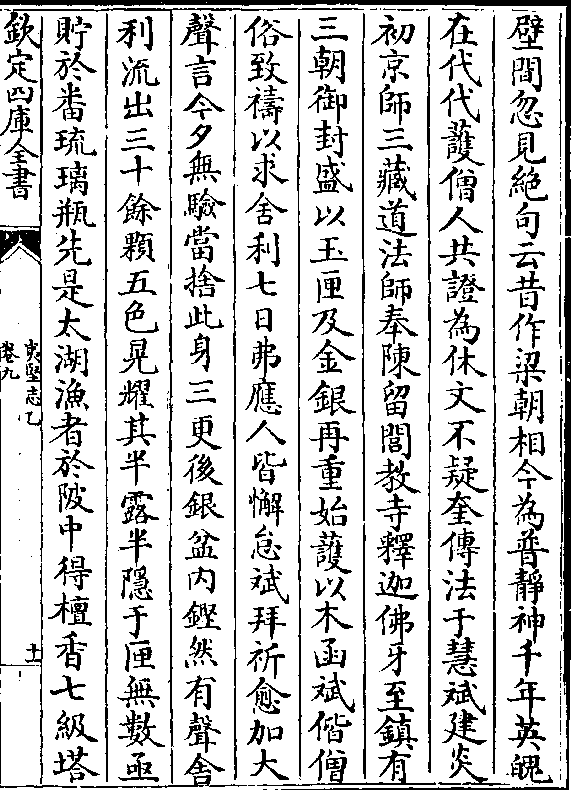 壁間忽見絶句云昔作梁朝相今為普靜神千年英魄
在代代護僧人共證為休文不疑奎傳法于慧斌建炎
初京師三藏道法師奉陳留閭教寺釋迦佛牙至鎮有
三朝御封盛以玉匣及金銀再重始護以木函斌偕僧
俗致禱以求舍利七日弗應人皆懈怠斌拜祈愈加大
聲言今夕無驗當捨此身三更後銀盆内鏗然有聲舍
利流出三十餘顆五色晃耀其半露半隱于匣無數亟
貯於畨琉璃瓶先是太湖漁者於陂中得檀香七級塔
欽定四庫全書
夷堅志乙
卷九
十一